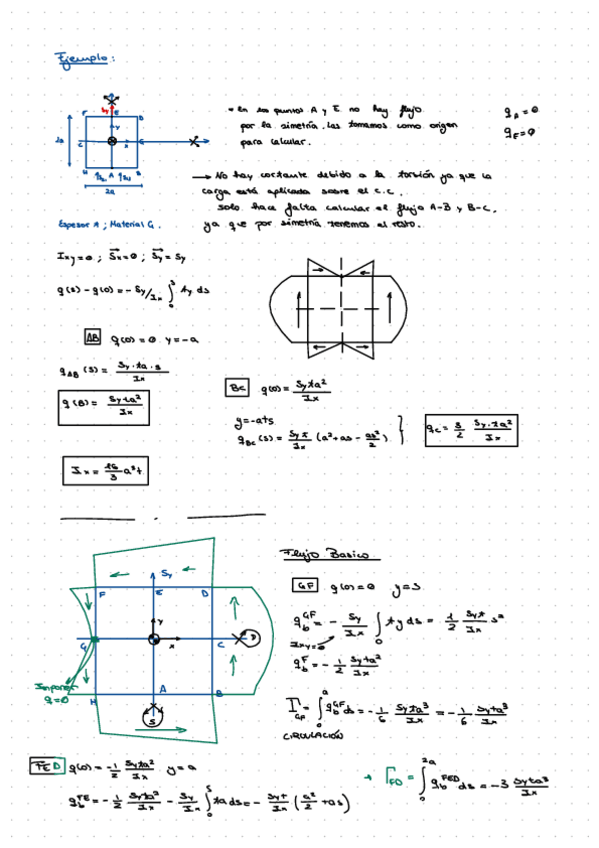 Ejemplo:
Sy
F E D
y
C x G
H A B
2a
2a
• En los puntos A y E no hay flujo
por la simetría. Las tomamos como origen
para calcular.
q_A = 0
q_E = 0
→ No hay cortante debido a la torsión ya que la
carga está aplicada sobre el C.C.
Solo hace falta calcular el flujo A-B y B-C,
ya que por simetría tenemos el resto.
Espesor t ; Material G.
Ixy = 0 ; Sx = 0 ; Sy = Sy
q(s) - q(0) = - Sy/Ix ∫₀ˢ ty ds
AB q(0) = 0 y = -a
q_AB(s) = Sy·ta·s / Ix
q(B) = Sy ta² / Ix
BC q(0) = Sy ta² / Ix
y = -a+s
q_BC(s) = Sy t / Ix (a² + as - as²/2)
q_C = 3/2 Sy·ta² / Ix
Ix = 16/3 a³t
Flujo Basico
GF q(0) = 0 y = s
q_b^GF = - Sy/Ix ∫₀ ty ds = 1/2 Sy t/Ix s²
Ixy = 0
q_b^F = - 1/2 Sy ta²/Ix
Γ_GF = ∫₀ᵃ q_b^GF ds = - 1/6 Sy ta³/Ix = - 1/6 Sy ta³/Ix
CIRCULACIÓN
Sy
F E D
y
G x C
Imponer
q = 0
H A B
S
FED q(0) = - 1/2 Sy ta²/Ix y = a
q_b^FE = - 1/2 Sy ta²/Ix - Sy/Ix ∫₀ˢ ta ds = - Sy t/Ix (a²/2 + as)
→ Γ_FD = ∫₀²ᵃ q_b^FED ds = - 3 Sy ta³/Ix